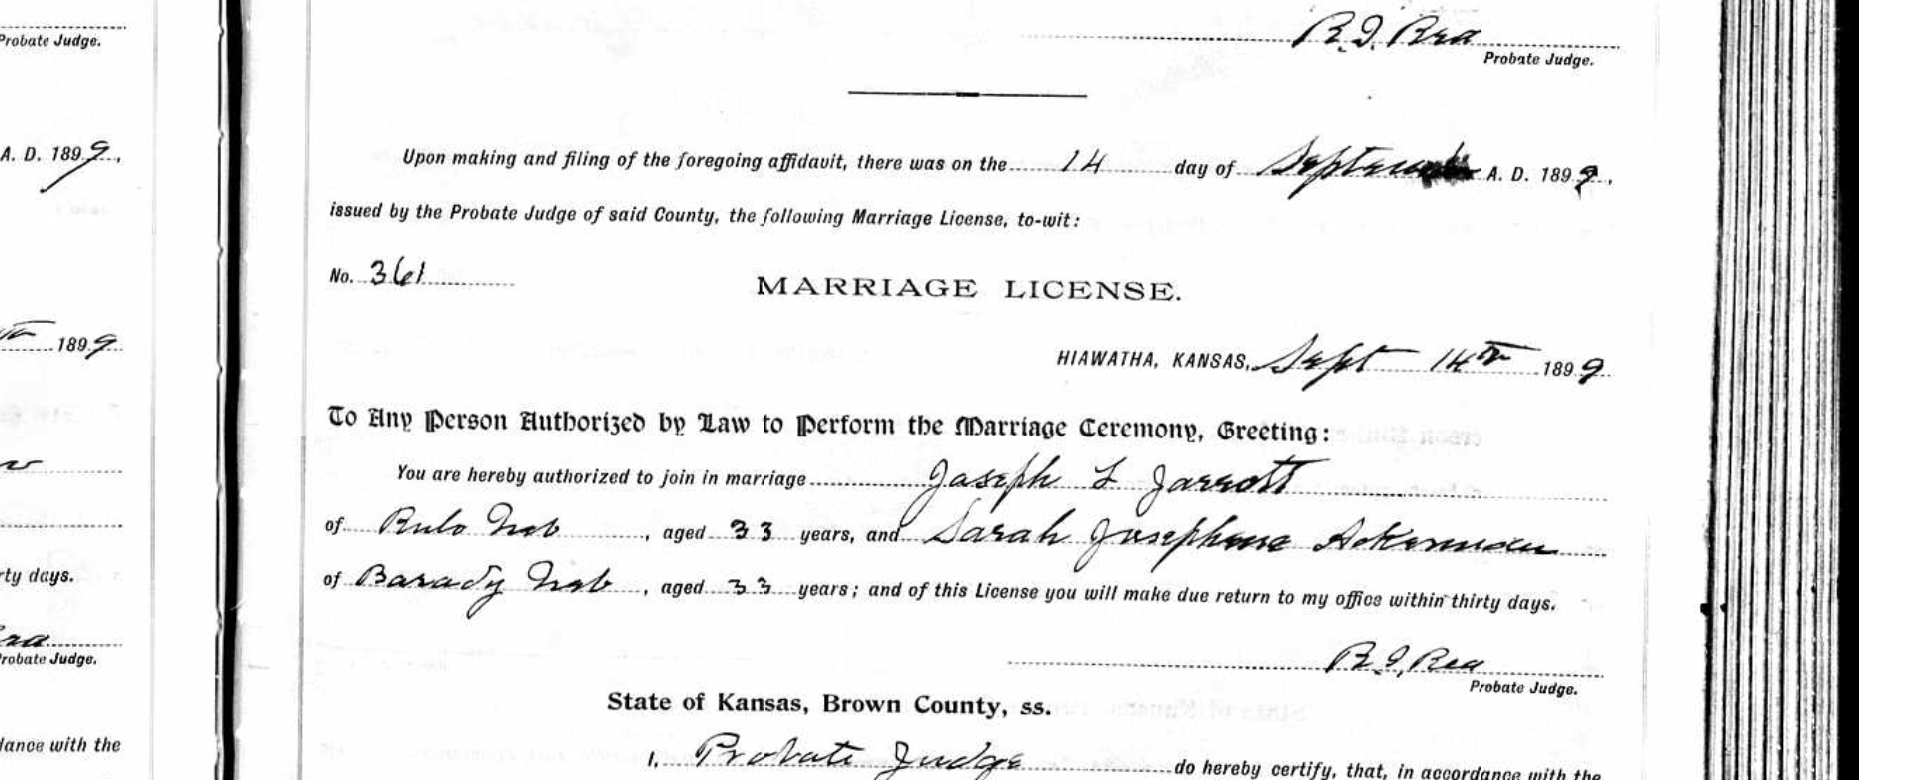 Probate Judge.
A. D. 1899,
1899
rty days.
Probate Judge.
dance with the
R. I. Rea
Probate Judge.
Upon making and filing of the foregoing affidavit, there was on the 14 day of September A. D. 1899,
issued by the Probate Judge of said County, the following Marriage License, to-wit:
No. 361
MARRIAGE LICENSE.
HIAWATHA, KANSAS, Sept 14th 1899
To Any Person Authorized by Law to Perform the Marriage Ceremony, Greeting:
You are hereby authorized to join in marriage Joseph L Jarrott
of Rulo Neb, aged 33 years, and Sarah Josephine Ackerman
of Barady Neb, aged 33 years; and of this License you will make due return to my office within thirty days.
R. I. Rea
Probate Judge.
State of Kansas, Brown County, ss.
I, Probate Judge do hereby certify, that, in accordance with the